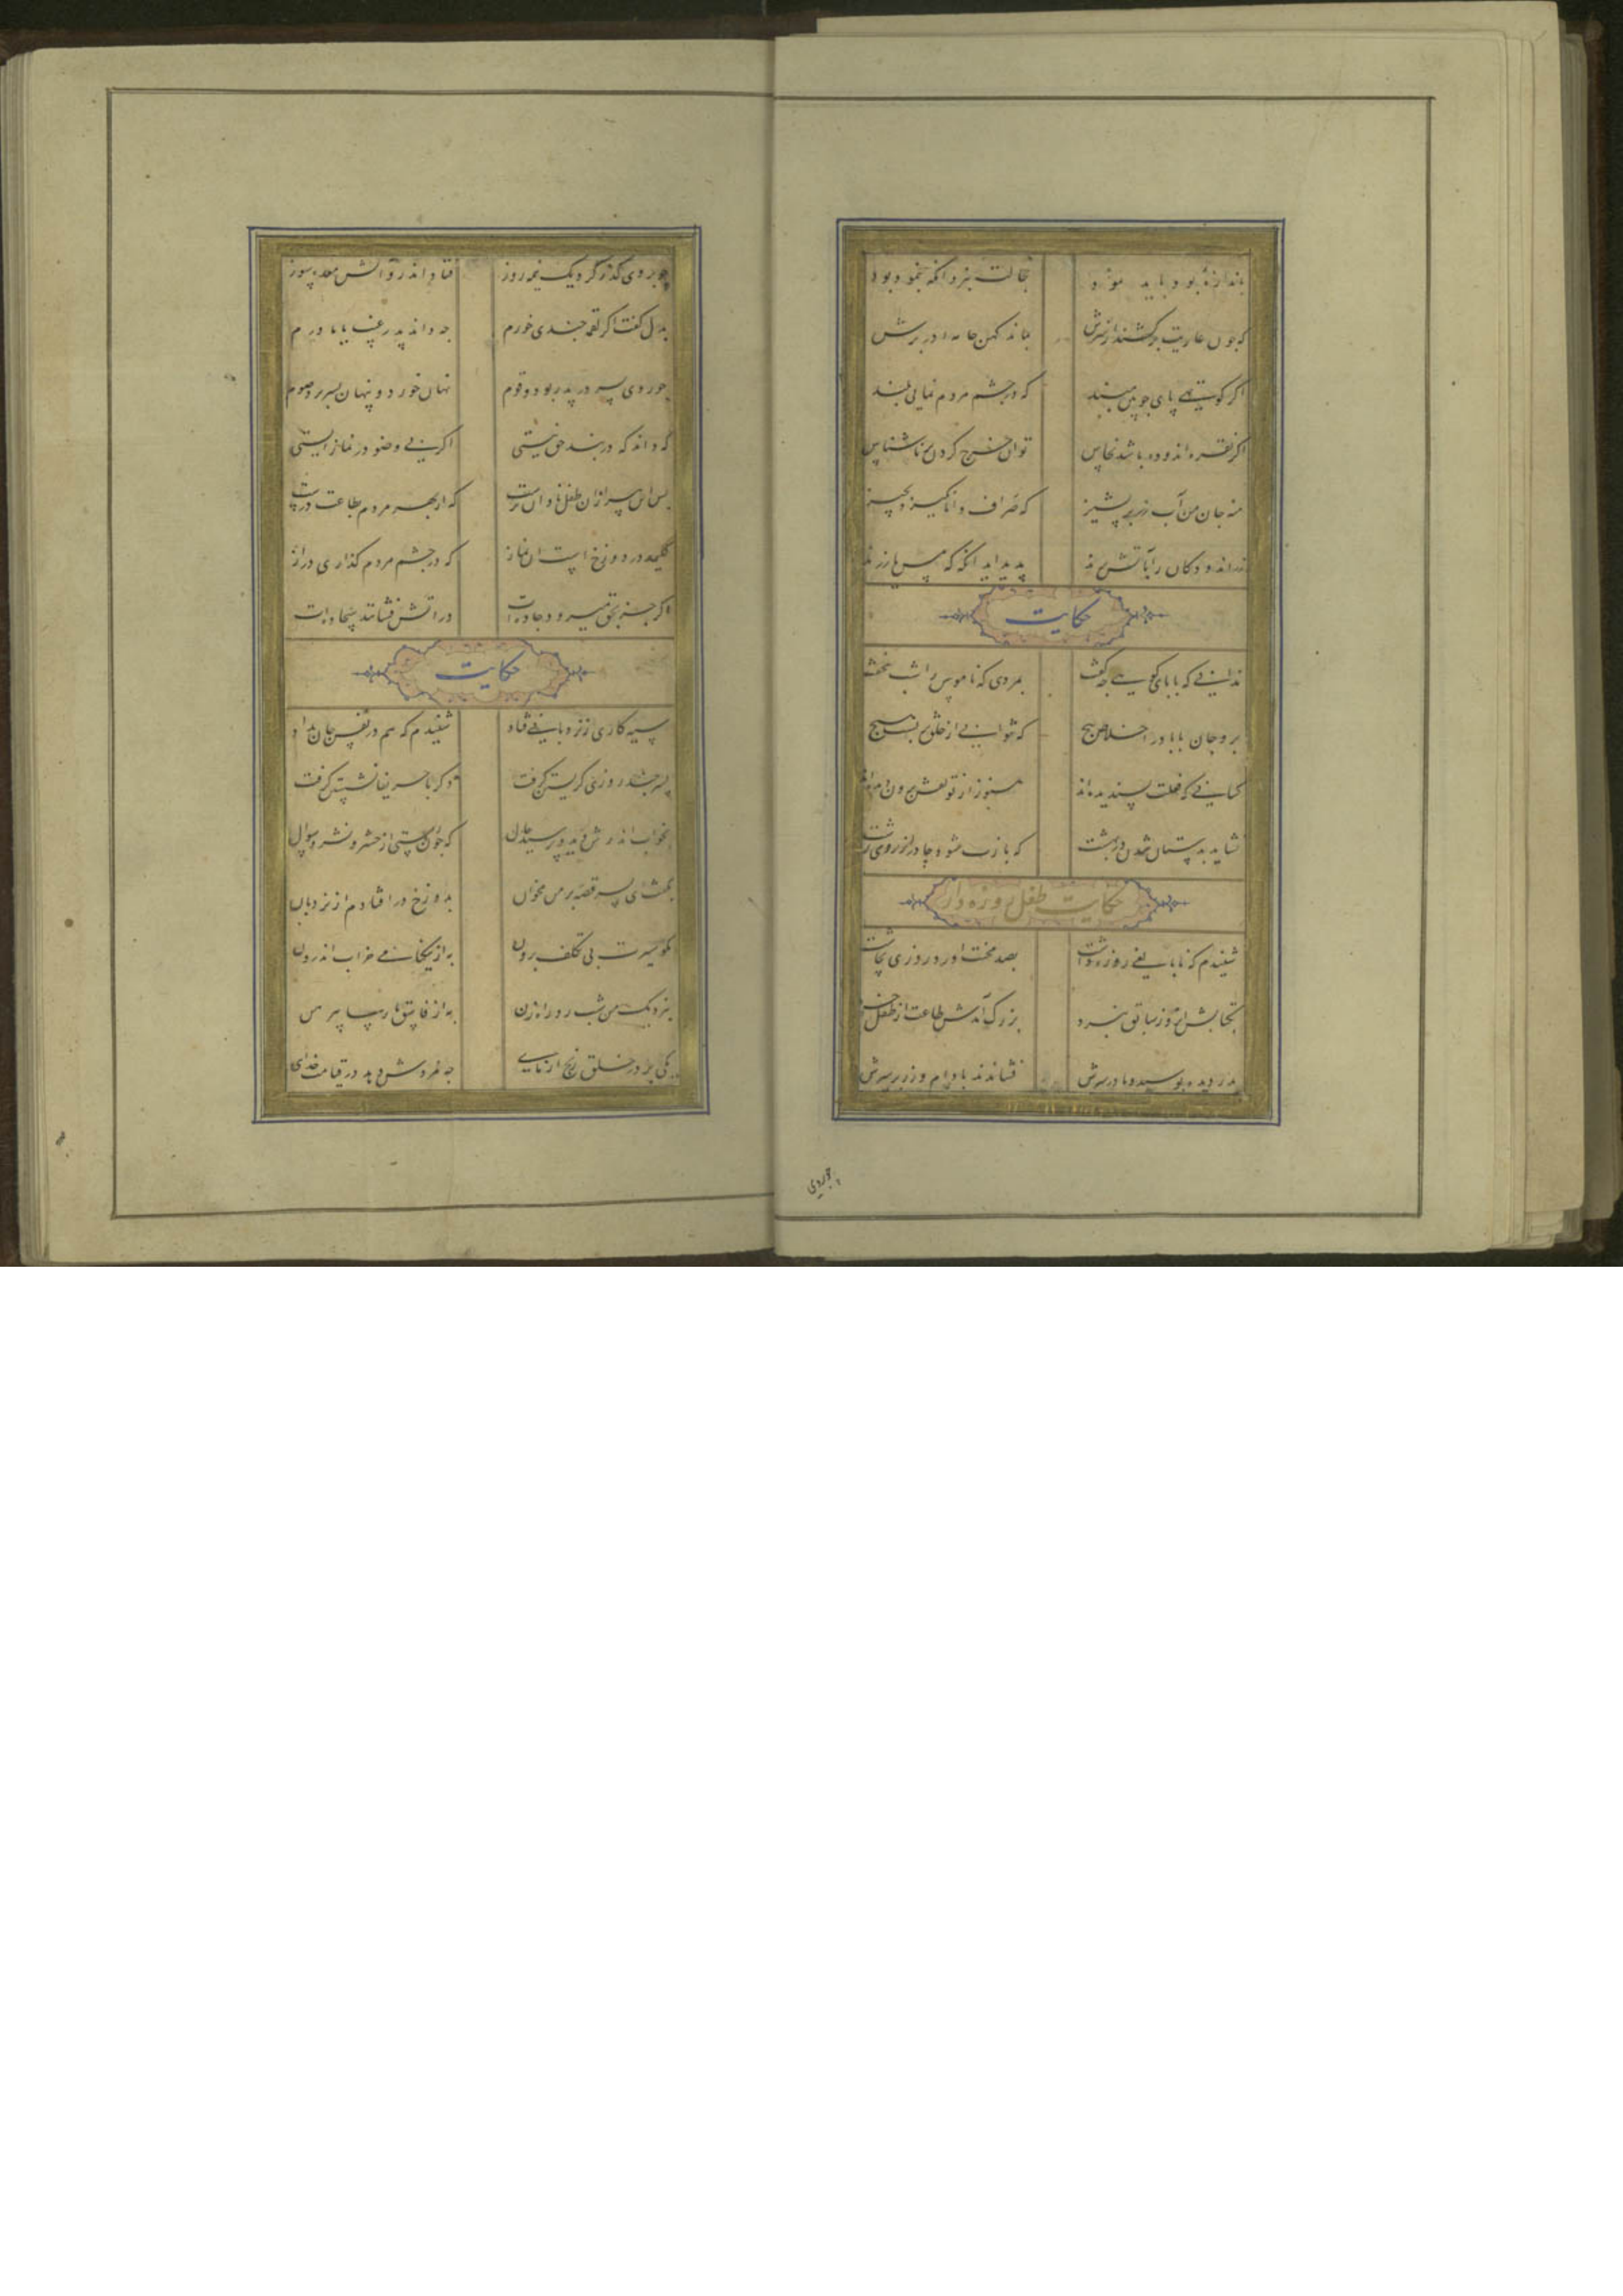 باندازهٔ بود باید نمود خجالت نبرد آنکه ننمود و بود
که چون عاریت برکشند از سرش بماند کهن جامه در برش
اگر کوتهی پای چوبین مبند که در چشم مردم نمائی بلند
اگر نقره اندوده باشد نحاس توان خرج کردن بر ناشناس
منه جان من آب زر بر پشیز که صراف دانا نگیرد بچیز
زراندودگان را بآتش برند پدید آید آنگه که مس یا زرند
حکایت
ندانی که بابای کوهی چه گفت بمردی که ناموس را شب نخفت
برو جان بابا در اخلاص پیچ که نتوانی از خلق بربست هیچ
کسانی که فعلت پسندیده‌اند هنوز از تو نقش برون دیده‌اند
نشاید بدستان شدن در بهشت که بازت شود چادر از روی زشت
حکایت طفل روزه دار
شنیدم که نابالغی روزه داشت بصد محنت آورد روزی بچاشت
بکتابش آنروز سائق نبرد بزرگ آمدش طاعت از طفل خرد
پدر دیده بوسید و مادر سرش فشاندند بادام و زر بر سرش
چو بروی گذر کرد یک نیمه روز فتاد اندرو آتش معده سوز
بدل گفت اگر لقمه چندی خورم چه داند پدر غیب یا مادرم
چو روی پسر در پدر بود و قوم نهان خورد و پنهان بسر برد صوم
که داند که در بند حق نیستی اگر بی وضو در نماز ایستی
پس این پیر از آن طفل نادان‌ترست که از بهر مردم بطاعت درست
کلید در دوزخ است آن نماز که در چشم مردم گذاری دراز
اگر جز بحق میرود جاده‌ات در آتش فشانند سجاده‌ات
حکایت
سیه کاری از نردبانی فتاد شنیدم که هم در نفس جان بداد
پسر چند روزی گریستن گرفت دگر با حریفان نشستن گرفت
بخواب اندرش دید و پرسید حال که چون رستی از حشر و نشر و سوال
بگفت ای پسر قصه بر من مخوان بدوزخ در افتادم از نردبان
نکو سیرت بی تکلف برون به از نیکنامی خراب اندرون
بنزدیک من شب رو راه زن به از فاسق پارسا پیرهن
یکی بر در خلق رنج آزمای چه مزدش دهد در قیامت خدای
چو بروی